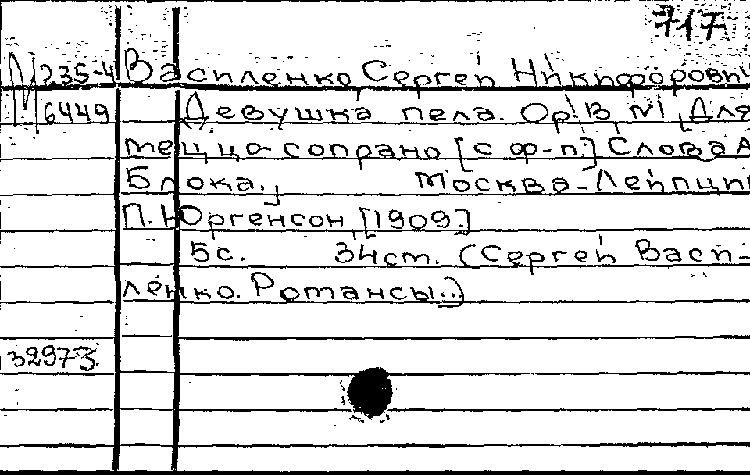 717
М 235-4 Василенко, Сергей Никифорови
6449 Девушка пела. Op. В, №1, Для
меццо-сопрано [с ф-п.] Слова А
Блока., Москва-Лейпциг
П. Юргенсон, [1909.]
5с. 34см. (Сергей Васи-
ленко. Романсы..)
32973